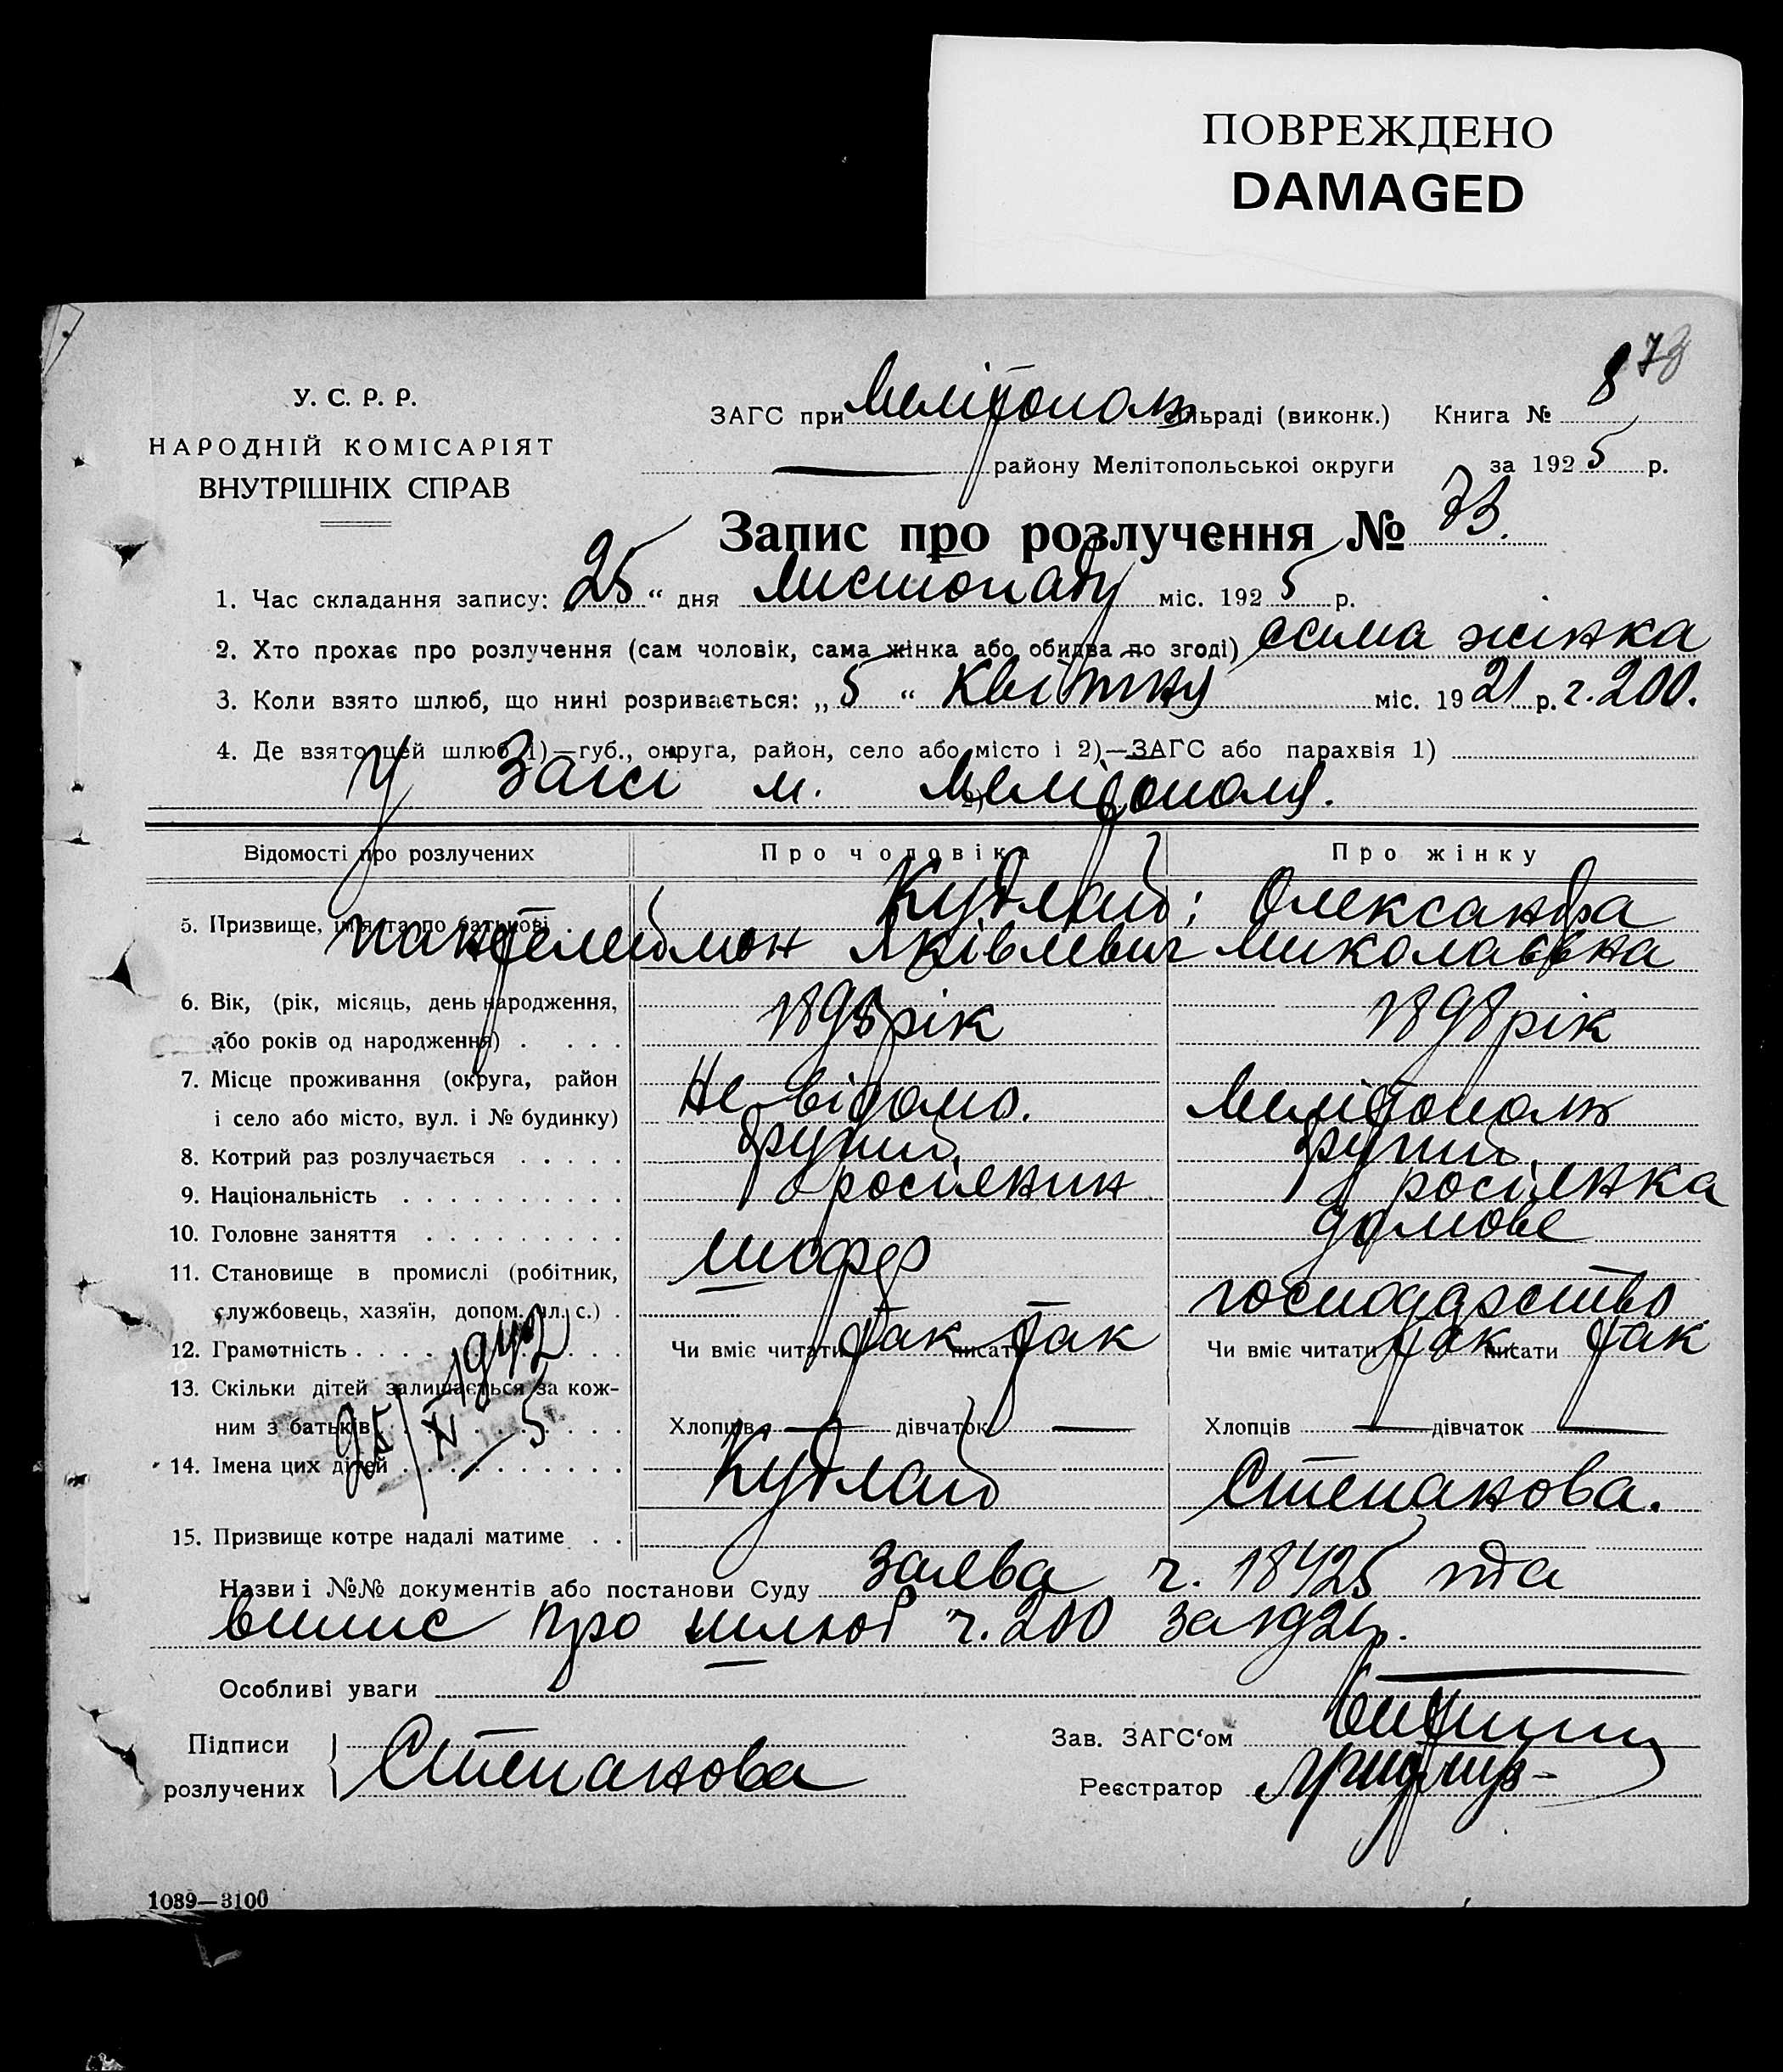 ПОВРЕЖДЕНО
DAMAGED
73
У. С. Р. Р.
НАРОДНІЙ КОМІСАРІЯТ
ВНУТРІШНІХ СПРАВ
ЗАГС при Мелітополь сільраді (виконк.) Книга № 8
— району Мелітопольської округи за 1925 р.
Запис про розлучення № 73.
1. Час складання запису: 25 “ дня листопаду міс. 1925 р.
2. Хто прохає про розлучення (сам чоловік, сама жінка або обидва по згоді) сама жінка
3. Коли взято шлюб, що нині розривається: „ 5 “ Квітня міс. 1921 р. г. 200.
4. Де взято цей шлюб 1)—губ., округа, район, село або місто і 2)—ЗАГС або парахвія 1)
У Загсі м. Мелітополя.
Відомості про розлучених Про чоловіка Про жінку
5. Призвище, ім'я та по батькові Кудлай; Олександра
Пантелеймон Яківлевич Миколаївна
6. Вік, (рік, місяць, день народження,
або років од народження) . . . . 1895 рік 1898 рік
7. Місце проживання (округа, район
і село або місто, вул. і № будинку) Не відомо. Мелітополь
8. Котрий раз розлучається . . . . . другий. другий.
9. Національність . . . . . . . . . . росіянин росіянка
10. Головне заняття . . . . . . . . . шофер домове
11. Становище в промислі (робітник,
службовець, хазяїн, допом. чл. с.) . господарство
12. Грамотність . . . . . . . . . . . Чи вміє читати так писати так Чи вміє читати так писати так
13. Скільки дітей залишається за кож-
ним з батьків . . . . . . . . . . . Хлопців — дівчаток — Хлопців — дівчаток —
14. Імена цих дітей . . . . . . . . . . Кудлай Степанова.
15. Призвище котре надалі матиме . .
Назви і №№ документів або постанови Суду заява ч. 18425 та
випис про шлюб ч. 200 за 1921р.
Особливі уваги
Підписи
розлучених Степанова
Зав. ЗАГС'ом
Реєстратор
1039—3100